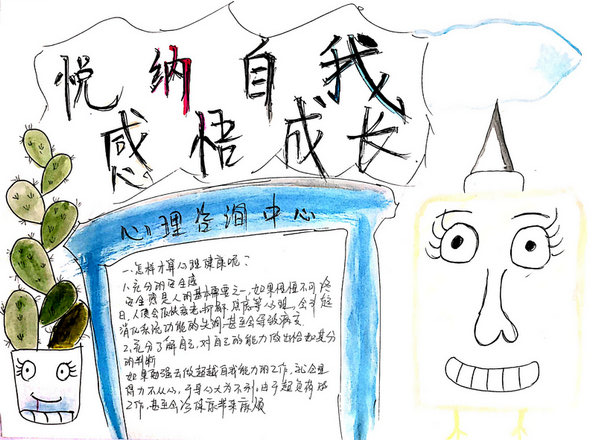 悦纳自我
感悟成长
心理咨询中心
一.怎样才算心理健康呢?
1.充分的安全感
安全感是人的基本需要之一,如果惶惶不可终
日,人便会很快衰老.抑郁.焦虑等心理,会引起
消化系统功能的失调,甚至会导致病变.
2.充分了解自己,对自己的能力做出恰如其分
的判断
如果勉强去做超越自我能力的工作,就会显
得力不从心,于身心大为不利.由于超负荷的
工作,甚至会给健康带来麻烦